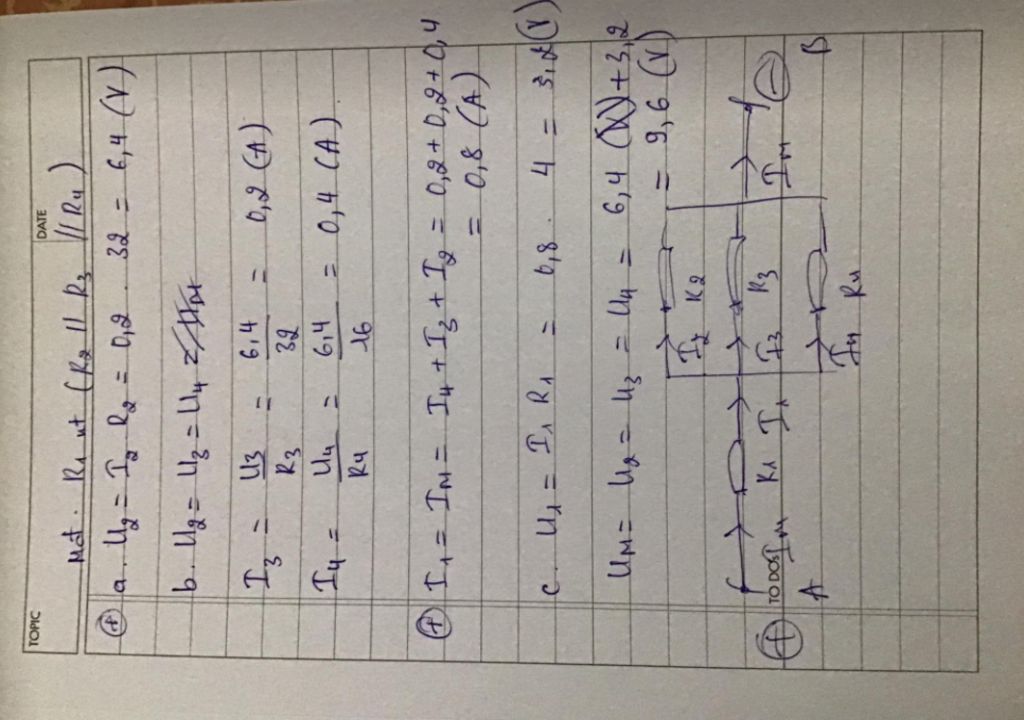 TOPIC
DATE
Mđt. R1 nt (R2 // R3 // R4)
+ a. U2 = I2 R2 = 0,2 . 32 = 6,4 (V)
b. U2 = U3 = U4
I3 = U3/R3 = 6,4/32 = 0,2 (A)
I4 = U4/R4 = 6,4/16 = 0,4 (A)
+ I1 = IM = I4 + I3 + I2 = 0,2 + 0,2 + 0,4
= 0,8 (A)
c. U1 = I1 R1 = 0,8 . 4 = 3,2 (V)
UM = U2 = U3 = U4 = 6,4 + 3,2
= 9,6 (V)
I2 R2
+ IM R1 I1 I3 R3 IM −
TO DOS
A I4 R4 B